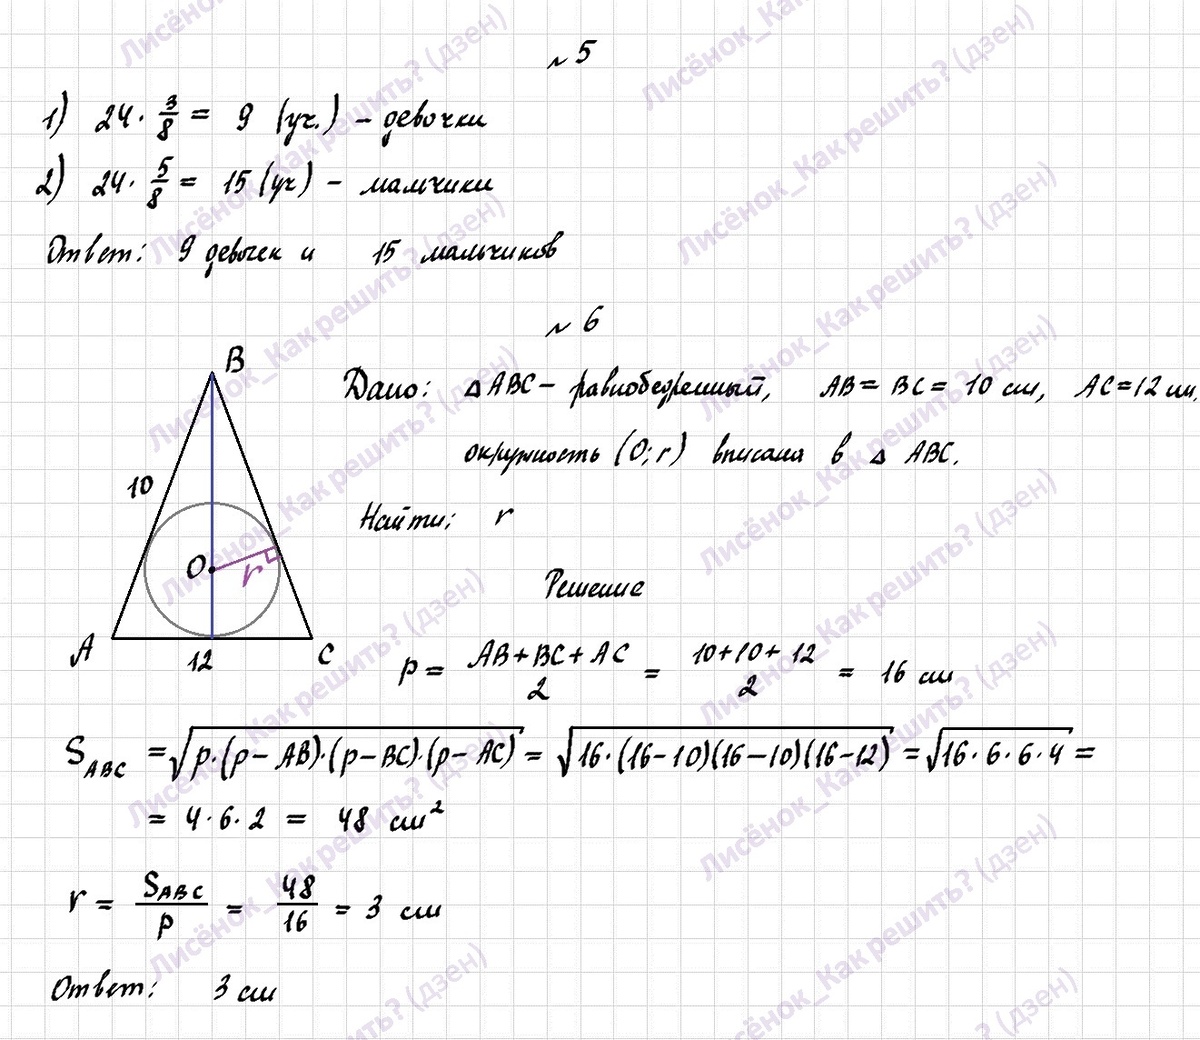 № 5
1) 24 · 3/8 = 9 (уч.) – девочки
2) 24 · 5/8 = 15 (уч) – мальчики
Ответ: 9 девочек и 15 мальчиков
№ 6
B
10
O
r
A
12
C
Дано: △ABC – равнобедренный, AB = BC = 10 см, AC = 12 см,
окружность (O; r) вписана в △ ABC.
Найти: r
Решение
p = (AB + BC + AC)/2 = (10 + 10 + 12)/2 = 16 см
S_ABC = √(p·(p – AB)·(p – BC)·(p – AC)) = √(16·(16–10)(16–10)(16–12)) = √(16·6·6·4) =
= 4·6·2 = 48 см²
r = S_ABC/p = 48/16 = 3 см
Ответ: 3 см
Лисёнок_Как решить? (дзен)